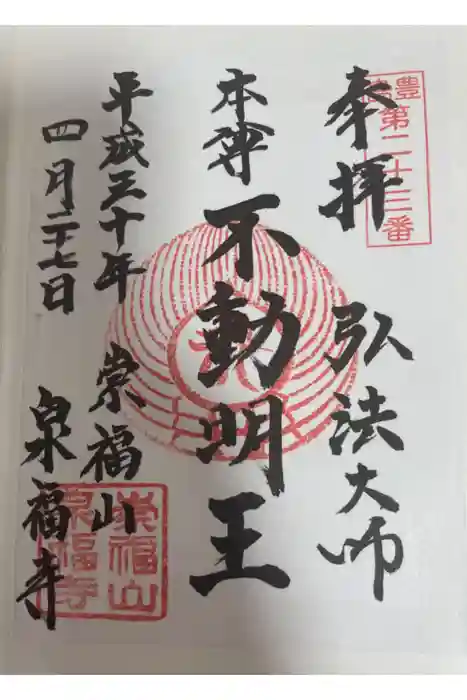 豊島
第二十三番
奉拝
弘法大師
本尊
不動明王
平成三十年
四月二十七日
崇福山
泉福寺
崇福山
泉福寺